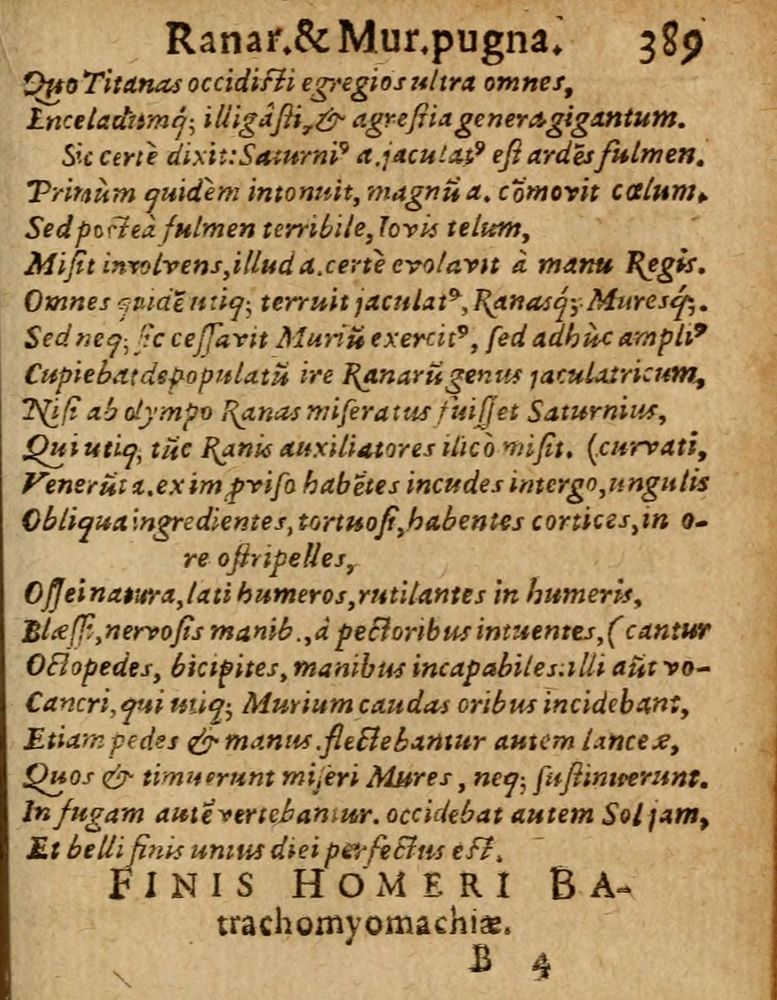 Ranar.& Mur.pugna. 389
Quo Titanas occidisti egregios ultra omnes,
Enceladumq́; illigâsti, & agrestia genera gigantum.
Sic certè dixit: Saturniꝰ a. jaculatꝰ est ardẽs fulmen.
Primùm quidèm intonuit, magnũ a. cõmovit cœlum.
Sed posteà fulmen terribile, Iovis telum,
Misit involvens, illud a. certè evolavit à manu Regis.
Omnes quidẽ utiq; terruit jaculatꝰ, Ranasq́; Muresq́;.
Sed neq; sic cessavit Muriũ exercitꝰ, sed adhùc ampliꝰ
Cupiebat depopulatũ ire Ranarũ genus jaculatricum,
Nisi ab olympo Ranas miseratus fuisset Saturnius,
Qui utiq; tũc Ranis auxiliatores ilicò misit. (curvati,
Venerũt a. ex imꝓviso habẽtes incudes intergo, ungulis
Obliqua ingredientes, tortuosi, habentes cortices, in o-
re ostripelles,
Ossei natura, lati humeros, rutilantes in humeris,
Blæssi, nervosis manib., à pectoribus intuentes, (cantur
Octopedes, bicipites, manibus incapabiles: illi aũt vo-
Cancri, qui utiq; Murium caudas oribus incidebant,
Etiam pedes & manus. flectebantur autem lanceæ,
Quos & timuerunt miseri Mures, neq; sustinuerunt.
In fugam autẽ vertebantur. occidebat autem Sol jam,
Et belli finis unius diei perfectus est.
FINIS HOMERI BA-
trachomyomachiæ.
B 4